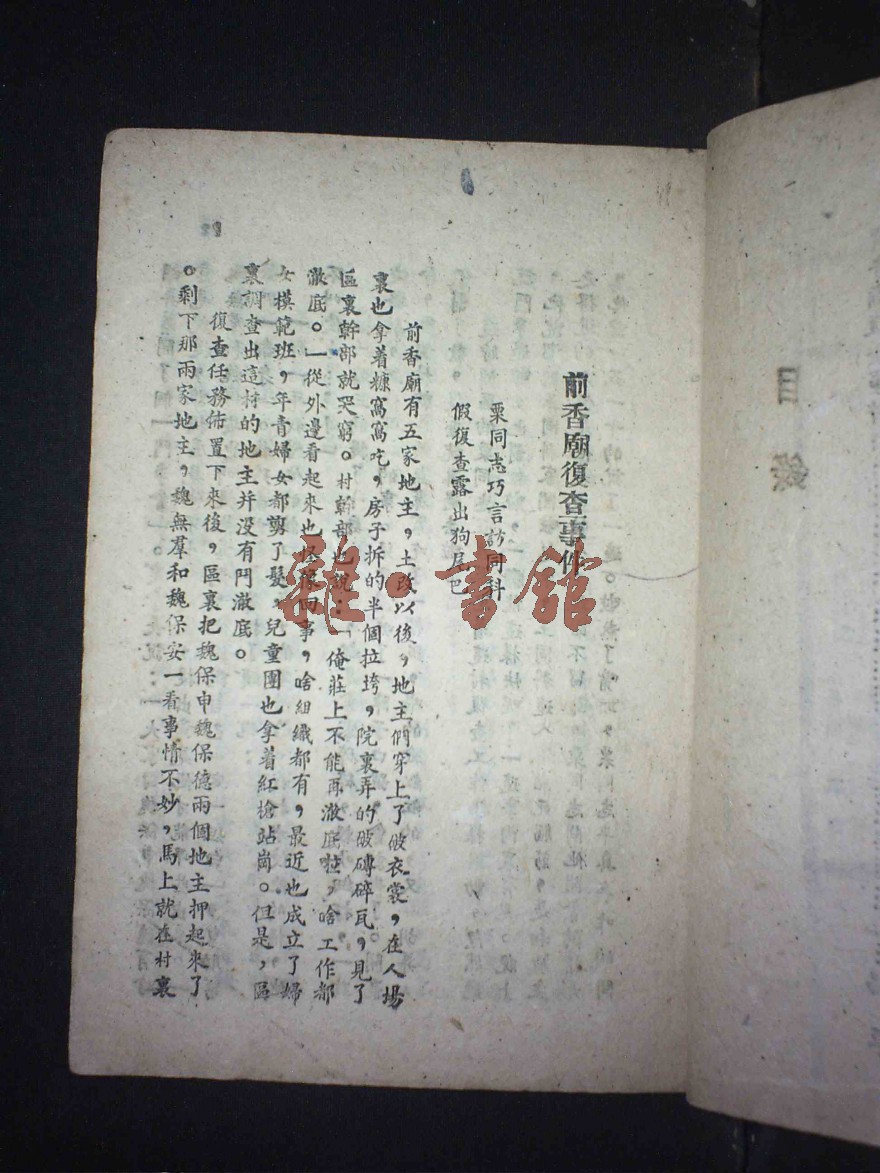 目錄
前香廟復查事件
栗同志巧言訪同科
假復查露出狗尾巴
前香廟有五家地主,土改以後,地主們穿上了破衣裳,在人場
裏也拿着糠窩窩吃,房子拆的半個拉垮,院裏弄的破磚碎瓦,見了
區裏幹部就哭窮。村幹部也說:「俺莊上不能再澈底啦,啥工作都
澈底。」從外邊看起來也怪像回事,啥組織都有,最近也成立了婦
女模範班,年青婦女都剪了髮,兒童團也拿着紅槍站崗。但是,區
裏調查出這村的地主并没有鬥澈底。
復查任務佈置下來後,區裏把魏保申魏保德兩個地主押起來了
。剩下那兩家地主,魏無羣和魏保安一看事情不妙,馬上就在村裏
雜·書館